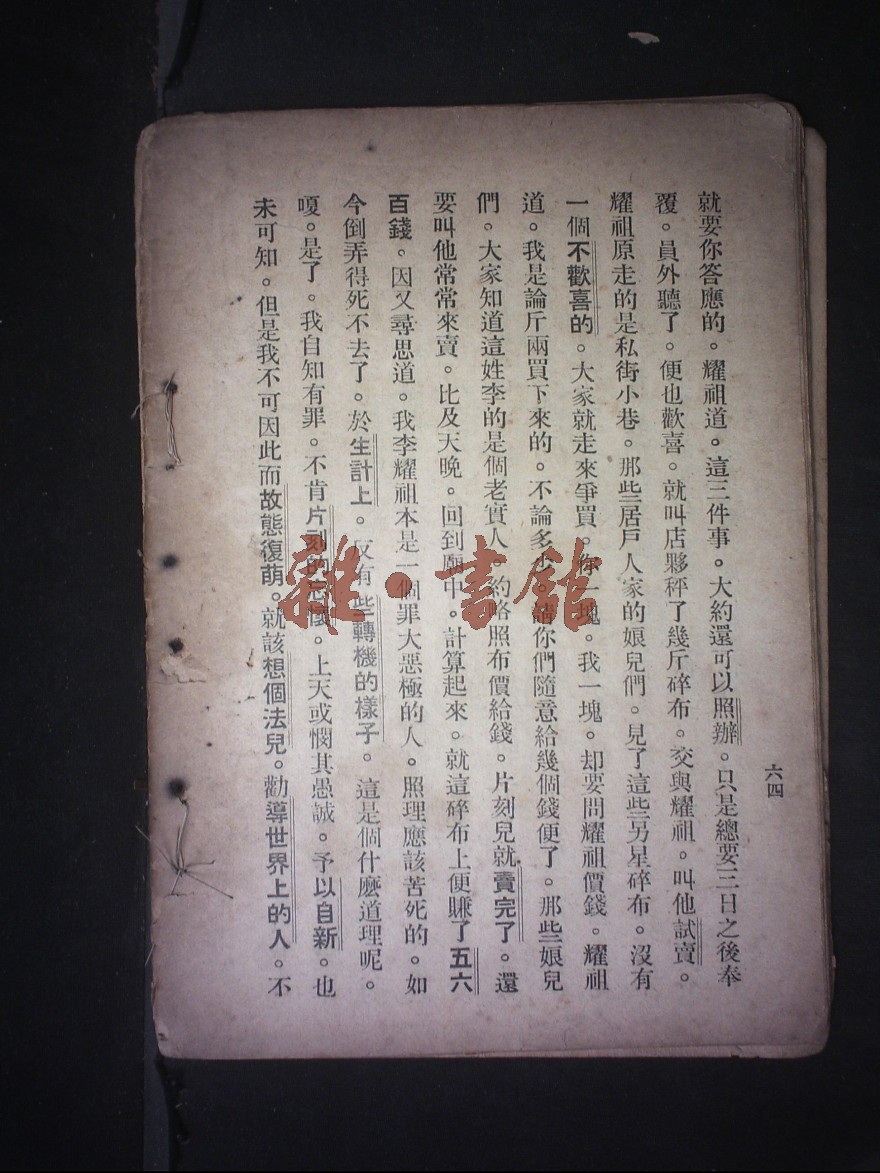 就要你答應的。耀祖道。這三件事。大約還可以照辦。只是總要三日之後奉
覆。員外聽了。便也歡喜。就叫店夥秤了幾斤碎布。交與耀祖。叫他試賣。
耀祖原走的是私街小巷。那些居戶人家的娘兒們。見了這些另星碎布。沒有
一個不歡喜的。大家就走來爭買。你一塊。我一塊。却要問耀祖價錢。耀祖
道。我是論斤兩買下來的。不論多少。請你們隨意給幾個錢便了。那些娘兒
們。大家知道這姓李的是個老實人。約略照布價給錢。片刻兒就賣完了。還
要叫他常常來賣。比及天晚。回到廟中。計算起來。就這碎布上便賺了五六
百錢。因又尋思道。我李耀祖本是一個罪大惡極的人。照理應該苦死的。如
今倒弄得死不去了。於生計上。反有些轉機的樣子。這是個什麽道理呢。
嗄。是了。我自知有罪。不肯片刻的忘懷。上天或憫其愚誠。予以自新。也
未可知。但是我不可因此而故態復萌。就該想個法兒。勸導世界上的人。不
六四
雜·書館